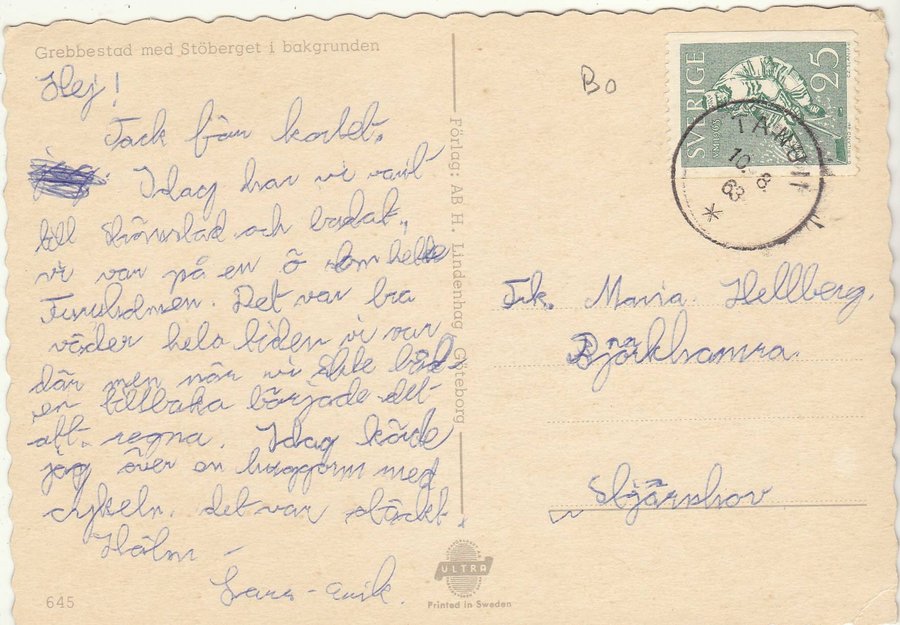 Grebbestad med Stöberget i bakgrunden
Hej!
Tack för kortet.
Idag har vi varit
till Strömstad och badat,
vi var på en ö som hette
Furuholmen. Det var bra
väder hela tiden vi var
där men när vi åkte båt
en tillbaka började det
att regna. Idag körde
jag över en huggorm med
cykeln. det var släckt.
Hälsn –
Lars-Erik.
645
Förlag: AB H. Lindenhag Göteborg
ULTRA
Printed in Sweden
Bo
SVERIGE
25
10. 8.
63
Frk. Maria Hellberg.
Björkhamra.
Stjärnhov